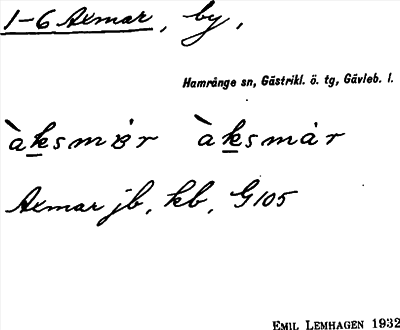 1-6 Axmar, by,
Hamrånge sn, Gästrikl. ö. tg, Gävleb. l.
àksmɑ̇r àksmȧr
Axmar jb, kb, G105
EMIL LEMHAGEN 1932